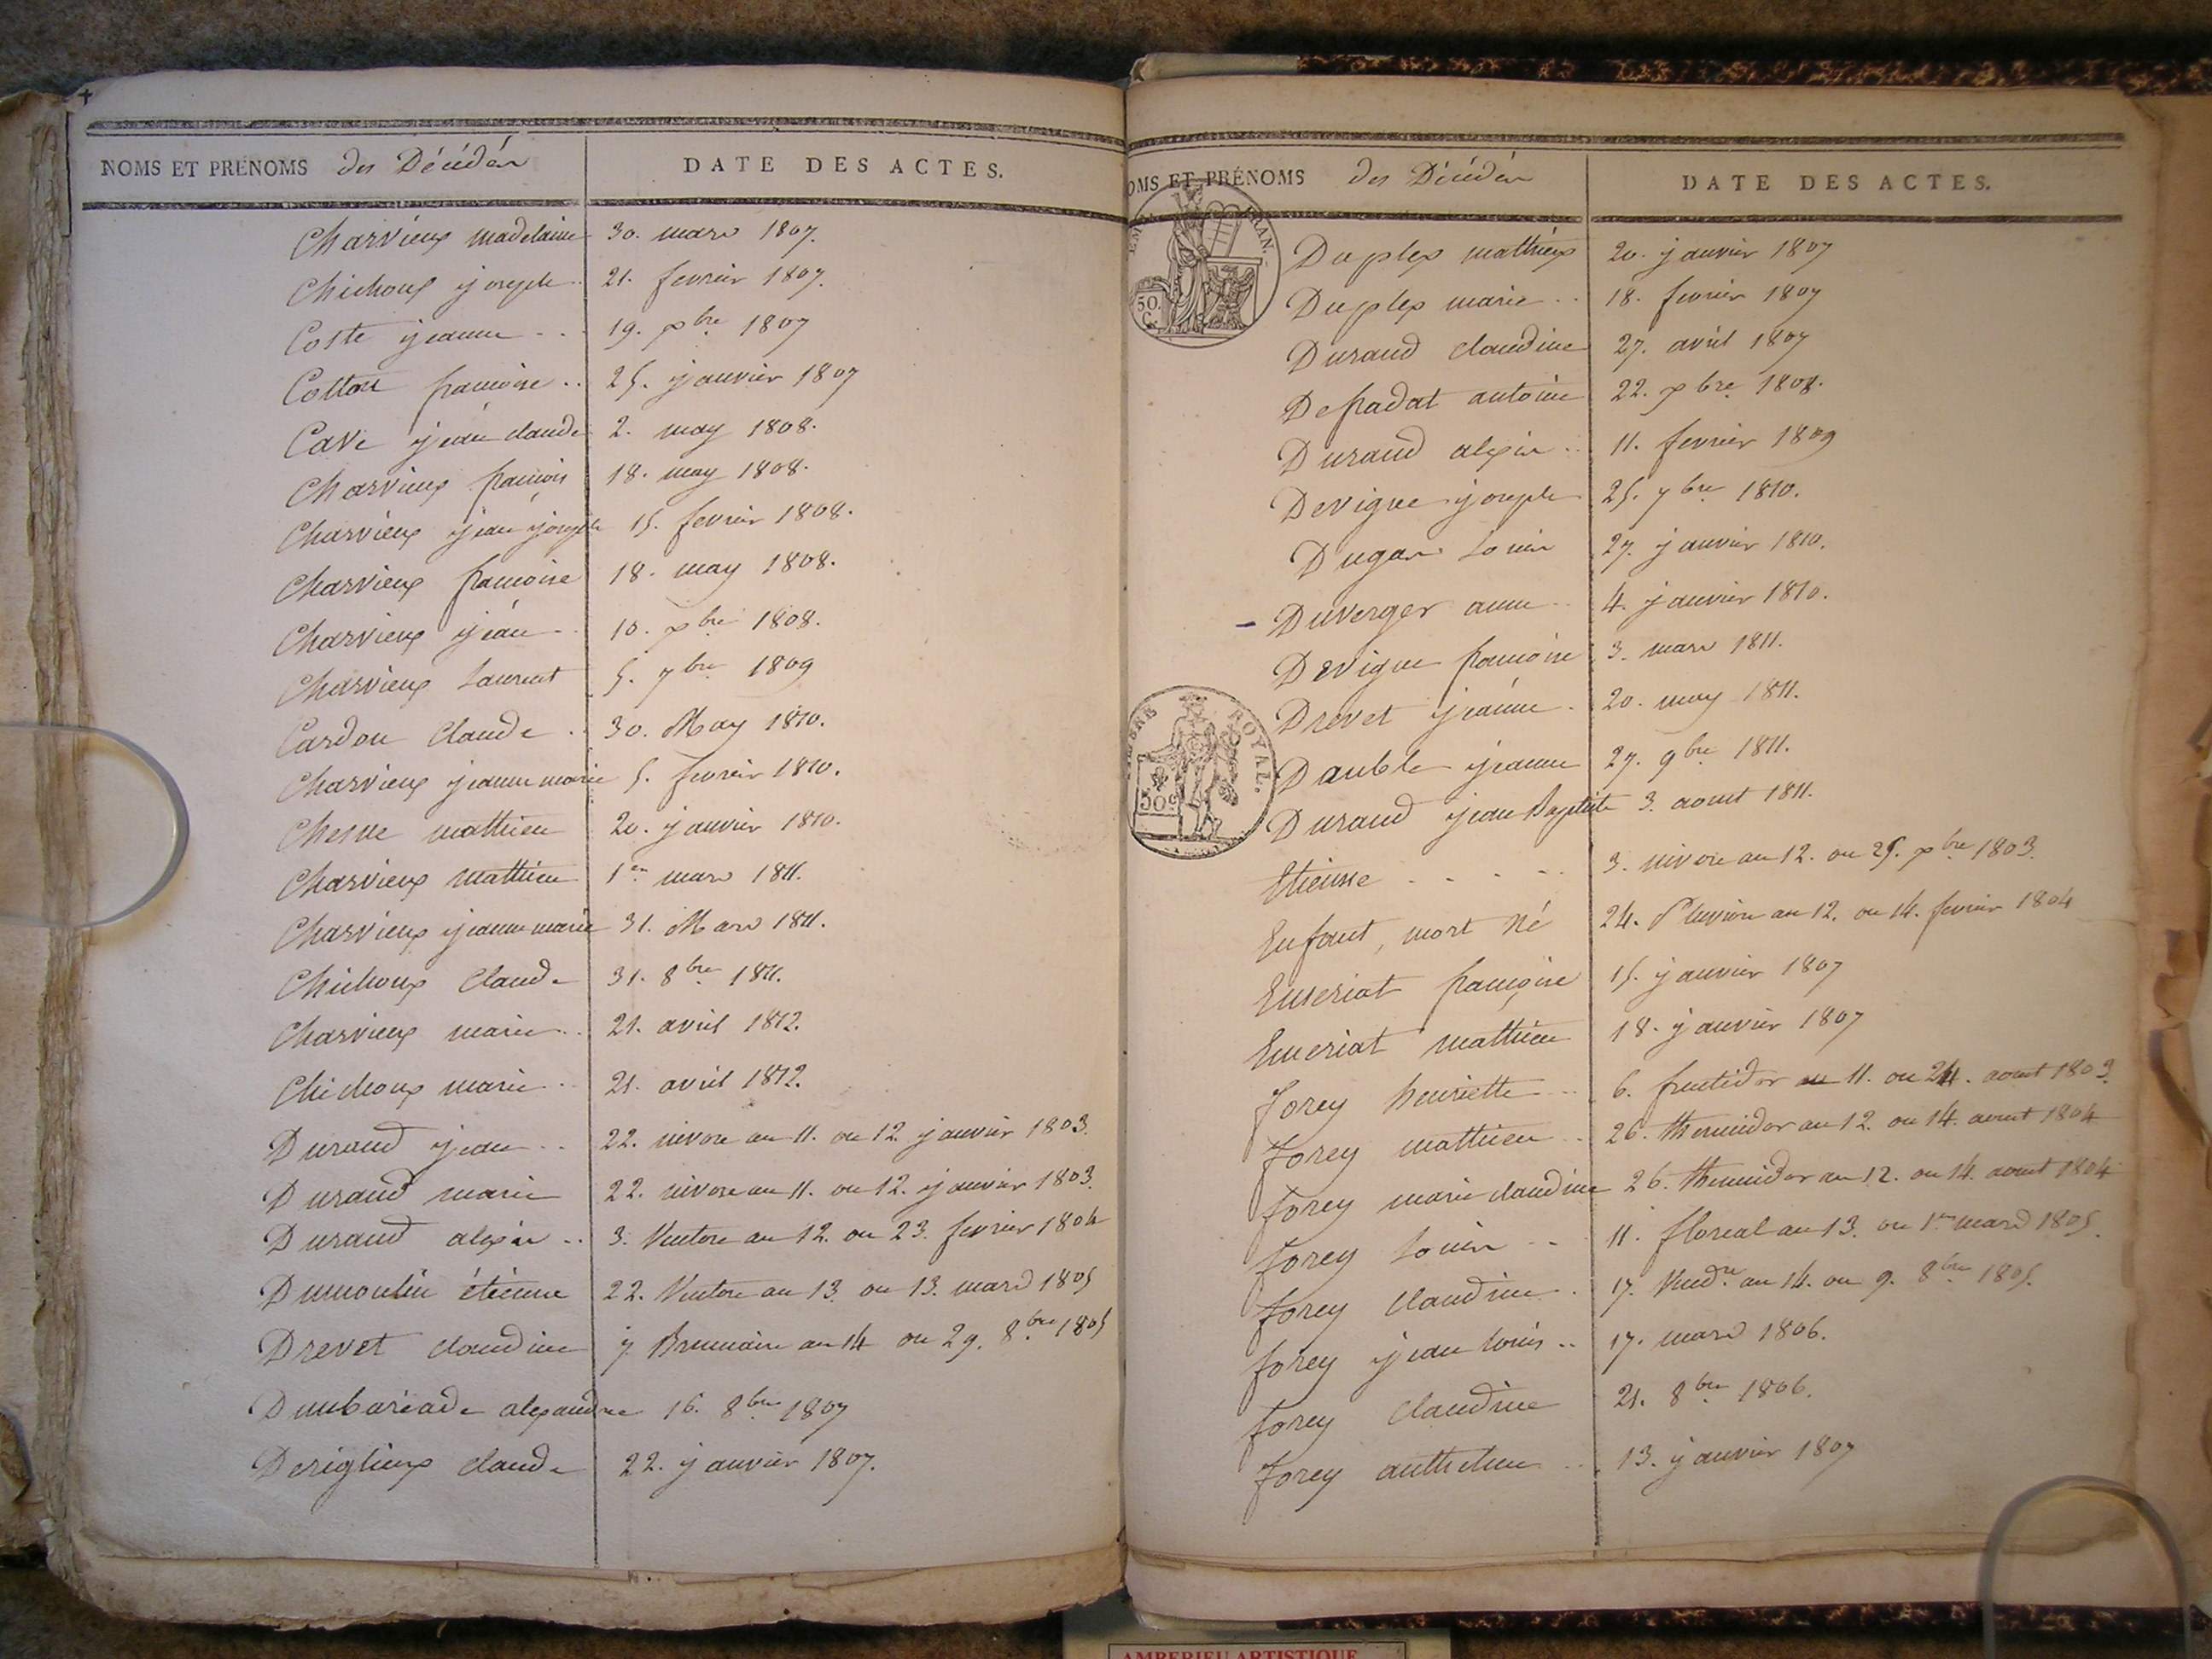 NOMS ET PRÉNOMS des Décédés
DATE DES ACTES.
Charvieux madelaine 30. mars 1807.
Chichoux joseph .. 21. fevrier 1807.
Coste jeanne .. 19. xbre 1807
Cotton françoise .. 25. janvier 1807
Cave jean claude 2. may 1808.
Charvieux françois 18. may 1808.
Charvieux jean joseph 15. fevrier 1808.
Charvieux françoise 18. may 1808.
Charvieux jean .. 10. xbre 1808.
Charvieux Laurent 5. 7bre 1809
Cardon Claude .. 30. May 1810.
Charvieux jeanne marie 5. fevrier 1810.
Chesne mathieu 20. janvier 1810.
Charvieux mathieu 1er mars 1811.
Charvieux jeanne marie 31. Mars 1811.
Chichoux Claude 31. 8bre 1811.
Charvieux marie .. 21. avril 1812.
Chichoux marie .. 21. avril 1812.
Durand jean .. 22. nivose an 11. ou 12. janvier 1803.
Durand marie 22. nivose an 11. ou 12. janvier 1803.
Durand alexis .. 3. Ventose an 12. ou 23. fevrier 1804
Dumoulin étienne 22. Ventose an 13. ou 13. mars 1805
Drevet claudine 7. Brumaire an 14 ou 29. 8bre 1805
Dumbariade alexandre 16. 8bre 1807
Deriglieux claude 22. janvier 1807.
OMS ET PRÉNOMS des Décédés
DATE DES ACTES.
FRAN.
50. C.
Duplex mathieu 20. janvier 1807
Duplex marie .. 18. fevrier 1807
Durand claudine 27. avril 1807
Defradat antoine 22. xbre 1808.
Durand alexis .. 11. fevrier 1809
Devigne joseph 25. 7bre 1810.
Dugas Louis 27. janvier 1810.
- Duverger anne .. 4. janvier 1810.
Devigne françoise 3. mars 1811.
Drevet jeanne . 20. may 1811.
ROYAL.
50c
Dauble jeanne 27. 9bre 1811.
Durand jean Baptiste 3. aoust 1811.
Etienne . . . . . 3. nivose an 12. ou 25. xbre 1803.
Enfant, mort né 24. Pluviose an 12. ou 14. fevrier 1804
Emeriat françoise 15. janvier 1807
Emeriat mathieu 18. janvier 1807
forey henriette .. 6. fructidor an 11. ou 24. aoust 1803.
forey mathieu .. 26. thermidor an 12. ou 14. aoust 1804
forey marie claudine 26. thermidor an 12. ou 14. aoust 1804
forey Louis .. 11. floreal an 13. ou 1er mars 1805.
forey claudine . 17. Vendre an 14. ou 9. 8bre 1805.
forey jean Louis .. 17. mars 1806.
forey claudine 21. 8bre 1806.
forey anthelme .. 13. janvier 1807
AMBERIEU ARTISTIQUE